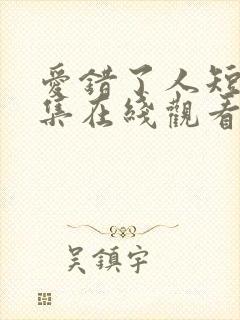 愛錯了人短
集在綫觀看
吳鎮宇